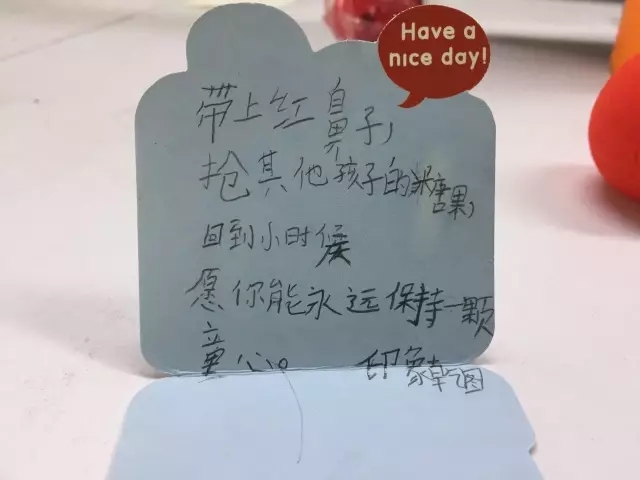 Have a
nice day!
带上红鼻子,
抢其他孩子的糖果,
回到小时候
愿你能永远保持一颗
童心。 印象乾图